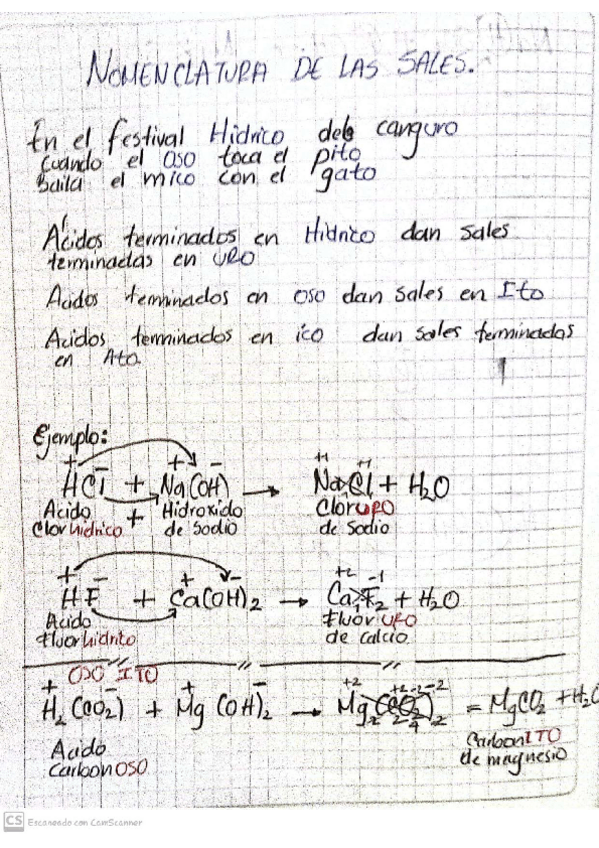 NOMENCLATURA DE LAS SALES.
En el festival Hidrico del canguro
cuando el oso toca el pito
baila el mico con el gato
Ácidos terminados en Hidrico dan sales
terminadas en uro
Acidos terminados en oso dan sales en Ito
Acidos terminados en ico dan sales terminadas
en Ato.
Ejemplo:
+ − + − +1 -1
HCl + Na(OH) → NaCl + H₂O
Acido + Hidroxido Cloruro
Clorhidrico de Sodio de Sodio
+ − + − +2 -1
HF + Ca(OH)₂ → CaF₂ + H₂O
Acido Fluoruro
Fluorhidrico de calcio
OSO ITO
H₂(CO₂) + Mg(OH)₂ → = MgCO₂ + H₂O
Acido CarbonITO
CarbonOSO de magnesio
CS Escaneado con CamScanner